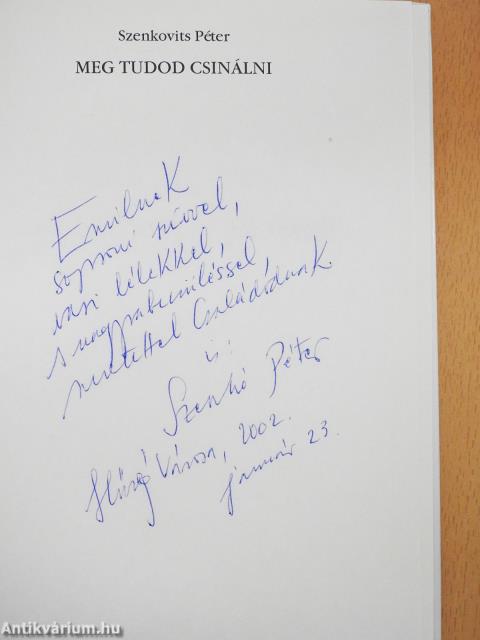 Szenkovits Péter
MEG TUDOD CSINÁLNI
Emilnek
soproni szívvel,
vasi lélekkel,
s nagyrabecsüléssel,
szeretettel Családodnak
is:
Szenkó Péter
Hűség Városa, 2002.
január 23.
Antikvárium.hu